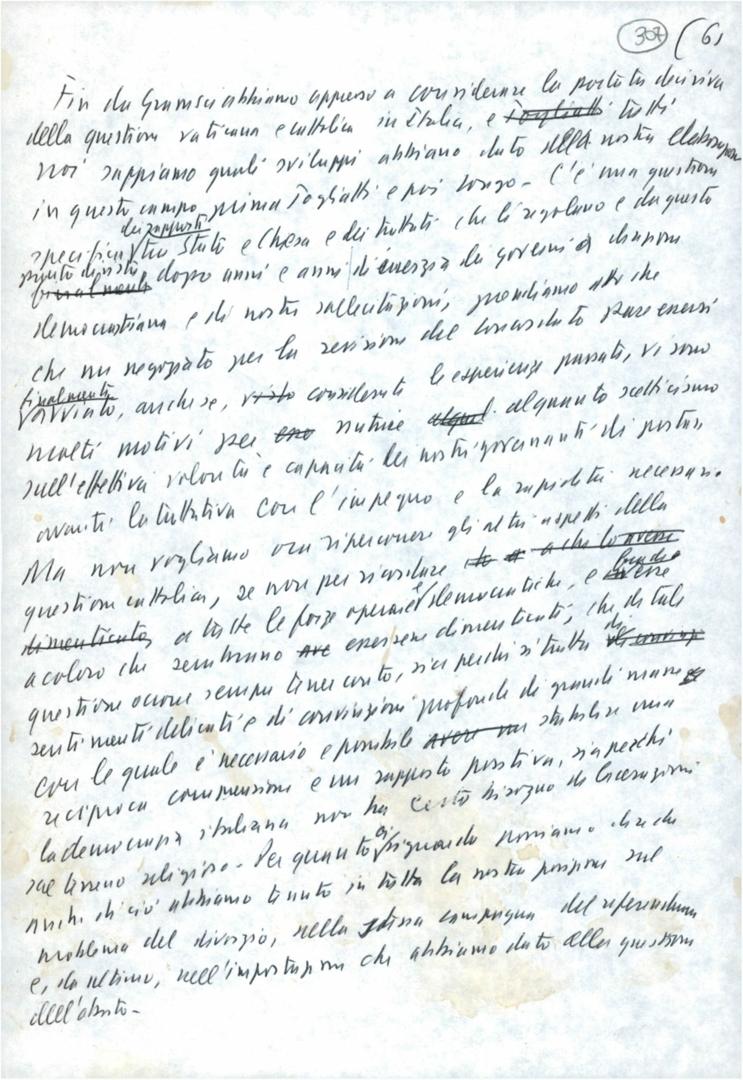 307 (6)
Fin da Gramsci abbiamo appreso a considerare la portata decisiva
della questione vaticana e cattolica in Italia, e Togliatti tutti
noi sappiamo quali sviluppi abbiano dato alla nostra elaborazione
in questo campo prima Togliatti e poi Longo - C'è una questione
dei rapporti
specifica tra Stato e Chiesa e dei trattati che li regolano e da questo
punto di vista
finalmente dopo anni e anni di inerzia dei governi a direzione
democristiana e di nostre sollecitazioni, prendiamo atto che
che un negoziato per la revisione del Concordato pare essersi
finalmente
avviato, anche se, visto considerate le esperienze passate, vi sono
molti motivi per nutrire alquanto scetticismo
sull'effettiva volontà e capacità dei nostri governanti di portare
avanti la trattativa con l'impegno e la rapidità necessari.
Ma non vogliamo ora ripercorrere gli altri aspetti della
questione cattolica, se non per ricordare a chi lo avesse
dimenticato, a tutte le forze operaie e democratiche, e anche
a coloro che sembrano essersene dimenticati, che di tale
questione occorre sempre tener conto, sia perché si tratta di
sentimenti delicati e di convinzioni profonde di grandi masse
con le quali è necessario e possibile avere un stabilire una
reciproca comprensione e un rapporto positivo, sia perché
la democrazia italiana non ha certo bisogno di lacerazioni
sul terreno religioso - Per quanto ci riguarda possiamo dire che
anche di ciò abbiamo tenuto in tutta la nostra posizione sul
problema del divorzio, nella stessa campagna del referendum
e, da ultimo, nell'impostazione che abbiamo dato alla questione
dell'aborto -